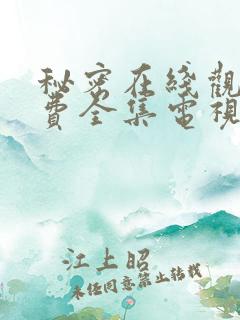 秘密在綫觀
費全集電視
江上昭
未任同意禁止轉載